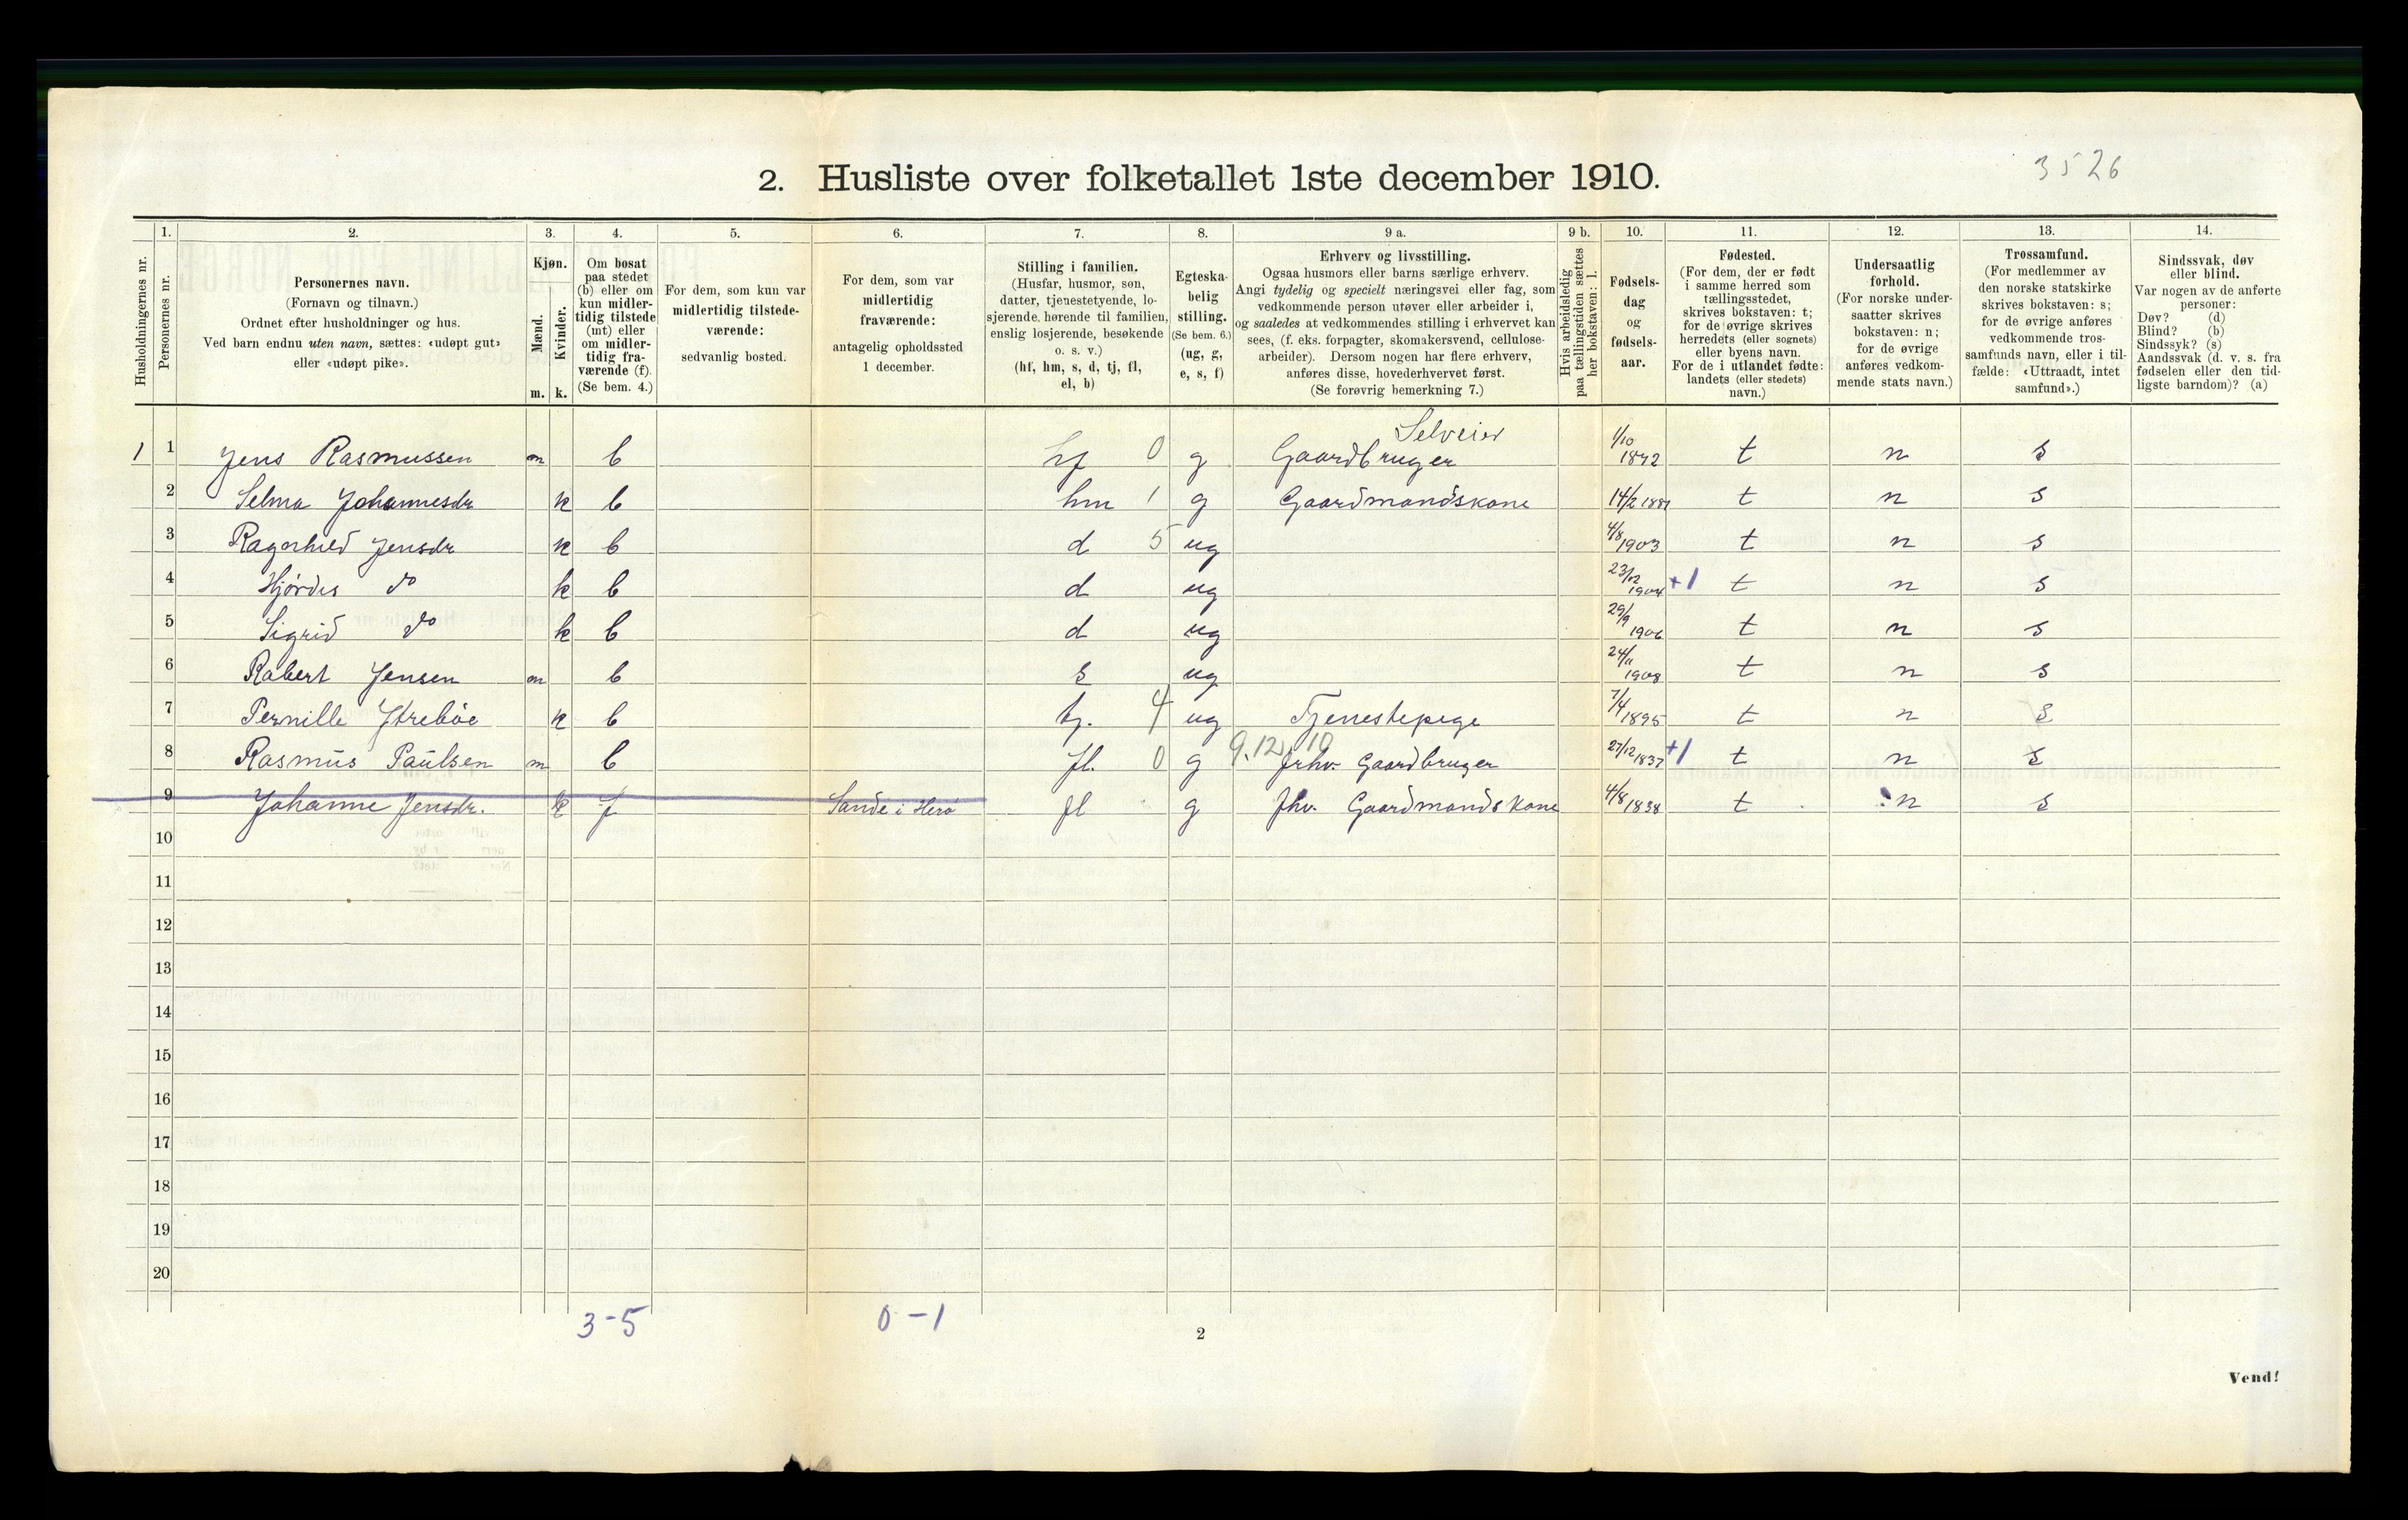 3526
2. Husliste over folketallet 1ste december 1910.
Husholdningernes nr.
1.
Personernes nr.
2.
Personernes navn.
(Fornavn og tilnavn.)
Ordnet efter husholdninger og hus.
Ved barn endnu uten navn, sættes: «udøpt gut»
eller «udøpt pike».
3.
Kjøn.
Mænd.
Kvinder.
m. k.
4.
Om bosat
paa stedet
(b) eller om
kun midler-
tidig tilstede
(mt) eller
om midler-
tidig fra-
værende (f).
(Se bem. 4.)
5.
For dem, som kun var
midlertidig tilstede-
værende:
sedvanlig bosted.
6.
For dem, som var
midlertidig
fraværende:
antagelig opholdssted
1 december.
7.
Stilling i familien.
(Husfar, husmor, søn,
datter, tjenestetyende, lo-
sjerende, hørende til familien,
enslig losjerende, besøkende
o. s. v.)
(hf, hm, s, d, tj, fl,
el, b)
8.
Egteska-
belig
stilling.
(Se bem. 6.)
(ug, g,
e, s, f)
9 a.
Erhverv og livsstilling.
Ogsaa husmors eller barns særlige erhverv.
Angi tydelig og specielt næringsvei eller fag, som
vedkommende person utøver eller arbeider i,
og saaledes at vedkommendes stilling i erhvervet kan
sees, (f. eks. forpagter, skomakersvend, cellulose-
arbeider). Dersom nogen har flere erhverv,
anføres disse, hovederhvervet først.
(Se forøvrig bemerkning 7.)
9 b.
Hvis arbeidsledig
paa tællingstiden sættes
her bokstaven: l.
10.
Fødsels-
dag
og
fødsels-
aar.
11.
Fødested.
(For dem, der er født
i samme herred som
tællingsstedet,
skrives bokstaven: t;
for de øvrige skrives
herredets (eller sognets)
eller byens navn.
For de i utlandet fødte:
landets (eller stedets)
navn.)
12.
Undersaatlig
forhold.
(For norske under-
saatter skrives
bokstaven: n;
for de øvrige
anføres vedkom-
mende stats navn.)
13.
Trossamfund.
(For medlemmer av
den norske statskirke
skrives bokstaven: s;
for de øvrige anføres
vedkommende tros-
samfunds navn, eller i til-
fælde: «Uttraadt, intet
samfund».)
14.
Sindssvak, døv
eller blind.
Var nogen av de anførte
personer:
Døv? (d)
Blind? (b)
Sindssyk? (s)
Aandssvak (d. v. s. fra
fødselen eller den tid-
ligste barndom)? (a)
Selveier
1 1 Jens Rasmussen m b hf 0 g Gaardbruger 1/10 1872 t n s
2 Selma Johannesdr k b hm 1 g Gaardmandskone 14/2 1881 t n s
3 Ragnhild Jensdr k b d 5 ug 4/8 1903 t n s
4 Hjørdis do k b d ug 23/12 1904 +1 t n s
5 Sigrid do k b d ug 29/9 1906 t n s
6 Robert Jensen m b s ug 24/11 1908 t n s
7 Pernille Ytrebøe k b tj. 4 ug Tjenestepige 7/4 1895 t n s
9.12 10
8 Rasmus Paulsen m b fl. 0 g frhv. Gaardbruger 27/12 1837 +1 t n s
9 Johanne Jensdr. k f Sande i Herø fl g fhv. Gaardmandskone 4/8 1838 t n s
10
11
12
13
14
15
16
17
18
19
20
3-5 0-1
2
Vend!